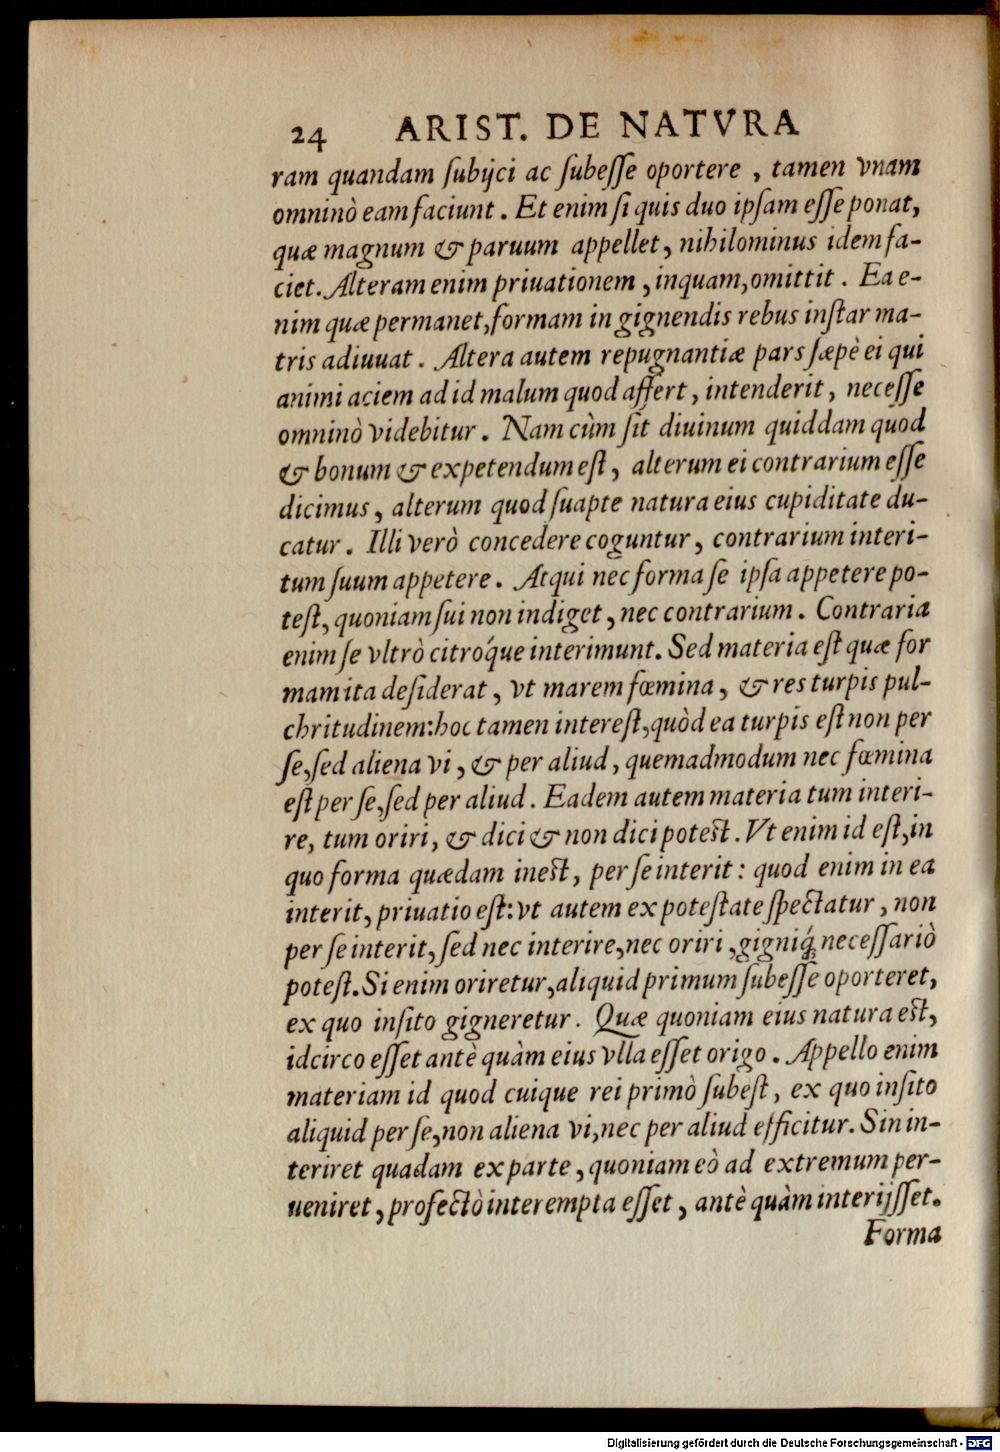 24 ARIST. DE NATVRA
ram quandam ſubijci ac ſubeſſe oportere , tamen vnam
omninò eam faciunt . Et enim ſi quis duo ipſam eſſe ponat,
quæ magnum & paruum appellet, nihilominus idem fa-
ciet. Alteram enim priuationem , inquam, omittit . Ea e-
nim quæ permanet, formam in gignendis rebus inſtar ma-
tris adiuuat . Altera autem repugnantiæ pars ſæpè ei qui
animi aciem ad id malum quod affert , intenderit , neceſſe
omninò videbitur . Nam cùm ſit diuinum quiddam quod
& bonum & expetendum eſt , alterum ei contrarium eſſe
dicimus , alterum quod ſuapte natura eius cupiditate du-
catur . Illi verò concedere coguntur , contrarium interi-
tum ſuum appetere . Atqui nec forma ſe ipſa appetere po-
teſt, quoniam ſui non indiget , nec contrarium . Contraria
enim ſe vltrò citróque interimunt. Sed materia eſt quæ for
mam ita deſiderat , vt marem fœmina , & res turpis pul-
chritudinem: hoc tamen intereſt, quòd ea turpis eſt non per
ſe, ſed aliena vi , & per aliud , quemadmodum nec fœmina
eſt per ſe, ſed per aliud . Eadem autem materia tum interi-
re, tum oriri, & dici & non dici poteſt . Vt enim id eſt, in
quo forma quædam ineſt, per ſe interit : quod enim in ea
interit, priuatio eſt: vt autem ex poteſtate ſpectatur , non
per ſe interit, ſed nec interire, nec oriri , gigniq́; neceſſariò
poteſt. Si enim oriretur, aliquid primum ſubeſſe oporteret,
ex quo inſito gigneretur . Quæ quoniam eius natura eſt,
idcirco eſſet antè quàm eius vlla eſſet origo . Appello enim
materiam id quod cuique rei primò ſubeſt , ex quo inſito
aliquid per ſe, non aliena vi, nec per aliud efficitur. Sin in-
teriret quadam ex parte , quoniam eò ad extremum per-
ueniret , profectò interempta eſſet , antè quàm interijſſet.
Forma
Digitalisierung gefördert durch die Deutsche Forschungsgemeinschaft - DFG